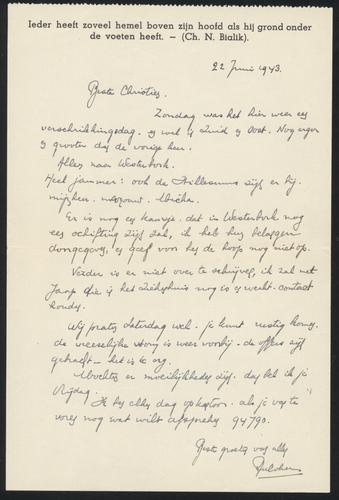 Ieder heeft zoveel hemel boven zijn hoofd als hij grond onder
de voeten heeft. — (Ch. N. Bialik).
22 Juni 1943.
Beste Christies,
Zondag was het hier weer een
verschrikkingsdag. zowel in Zuid en Oost. Nog erger
en grooter dan de vorige keer.
Alles naar Westerbork.
Heel jammer: ook de Hillesums zijn er bij.
mijnheer, mevrouw, Mischa.
Er is nog een kansje, dat in Westerbork nog
een schifting zijn zal, ik heb hun belangen
doorgegeven, en geef voor hen de hoop nog niet op.
Verder is er niet over te schrijven, ik zal met
Jaap die in het Ziekenhuis nog is en werkt contact
houden.
Wij praten Zaterdag wel. je kunt rustig komen.
de vreeselijke storm is weer voorbij. de offers zijn
gebracht — het is te erg.
Mochten er moeilijkheden zijn, dan bel ik je
Vrijdag.
Ik ben elken dag op kantoor. als je van te
voren nog wat wilt afspreken 94790.
Beste groeten voor allen